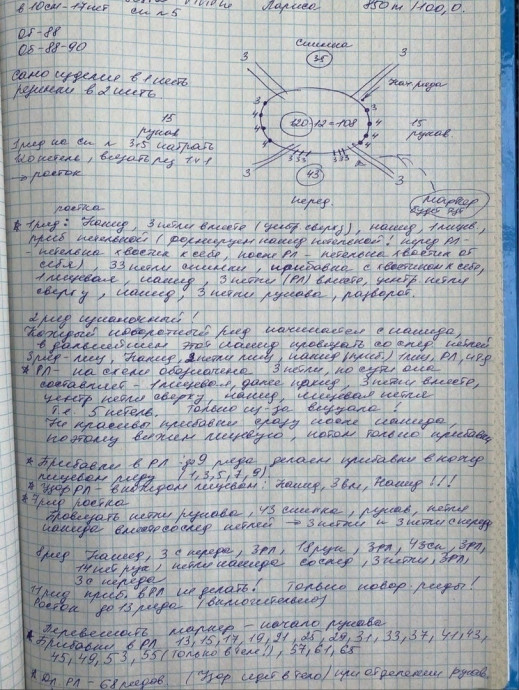 в 10см-17пет сп. №5 Лариса 850м/100,0.
ОГ-88
ОБ-88-90
само изделие в 1 нить
резинки в 2 нить
Спинка
35
3
3
Нач ряда
15
рукав
3
4
4
4
120-12=108
3
4
4
4
15
рукав.
1 ряд на сп № 3,5 набрать
120 петель, вязать рез 1x1
→ росток
3
333
333
3
43
перед.
маркер
ростка
* 1 ряд: Накид, 3 петли вместе (центр сверху), накид, 1 лицев.,
приб петельной (формируем накид петелькой! перед РЛ-
-петелька хвостик к себе, после РЛ - петелька хвостик от
себя) 33 петли спинки, прибавка с хвостиком к себе,
1 лицевая, накид, 3 петли (РЛ) вместе, центр петля
сверху, накид, 3 петли рукава, разворот.
2 ряд изнаночный!
Каждый поворотный ряд начинается с накида,
в дальнейшем этот накид провязать со след петлей
3 ряд-лиц, Накид, 2 петли лиц, накид (приб) 1 лиц, РЛ,
* РЛ- на схеме обозначена 3 петли, но сути она
составляет - 1 лицевая, далее накид, 3 петли вместе,
центр петля сверху, накид, лицевая петля
т.е. 5 петель. Только из-за визуала!
Не красивы прибавки сразу после накида,
поэтому вяжем лицевую, потом только прибавку
* Прибавки в РЛ: до 9 ряда делаем прибавки в каждом
лицевом ряду (1,3,5,7,9)
* Узор РЛ- в каждом лицевом: Накид, 3 вм, Накид!!!
* 7 ряд ростка
Провязать петли рукава, 43 спинка, рукав, петля
накида вместе со след петлей → 3 петли и 3 петли с переда
9 ряд Накид, 3 с переда, 3РЛ, 18 рук, 3РЛ, 43 сп, 3РЛ,
14 пет рук, петля накида со след, 3 петли, 3РЛ,
3 с переда
11 ряд приб. в РЛ не делать! Только повор. ряды!
Росток до 13 ряда (включительно)
Перевесить маркер - начало рукава
* Прибавки в РЛ 13, 15, 17, 19, 21, 25, 29, 31, 33, 37, 41, 43,
45, 49, 53, 55 (только в теле!), 57, 61, 65
* Дл. РЛ - 68 рядов. (Узор идет в тело) при отделении рукавов.